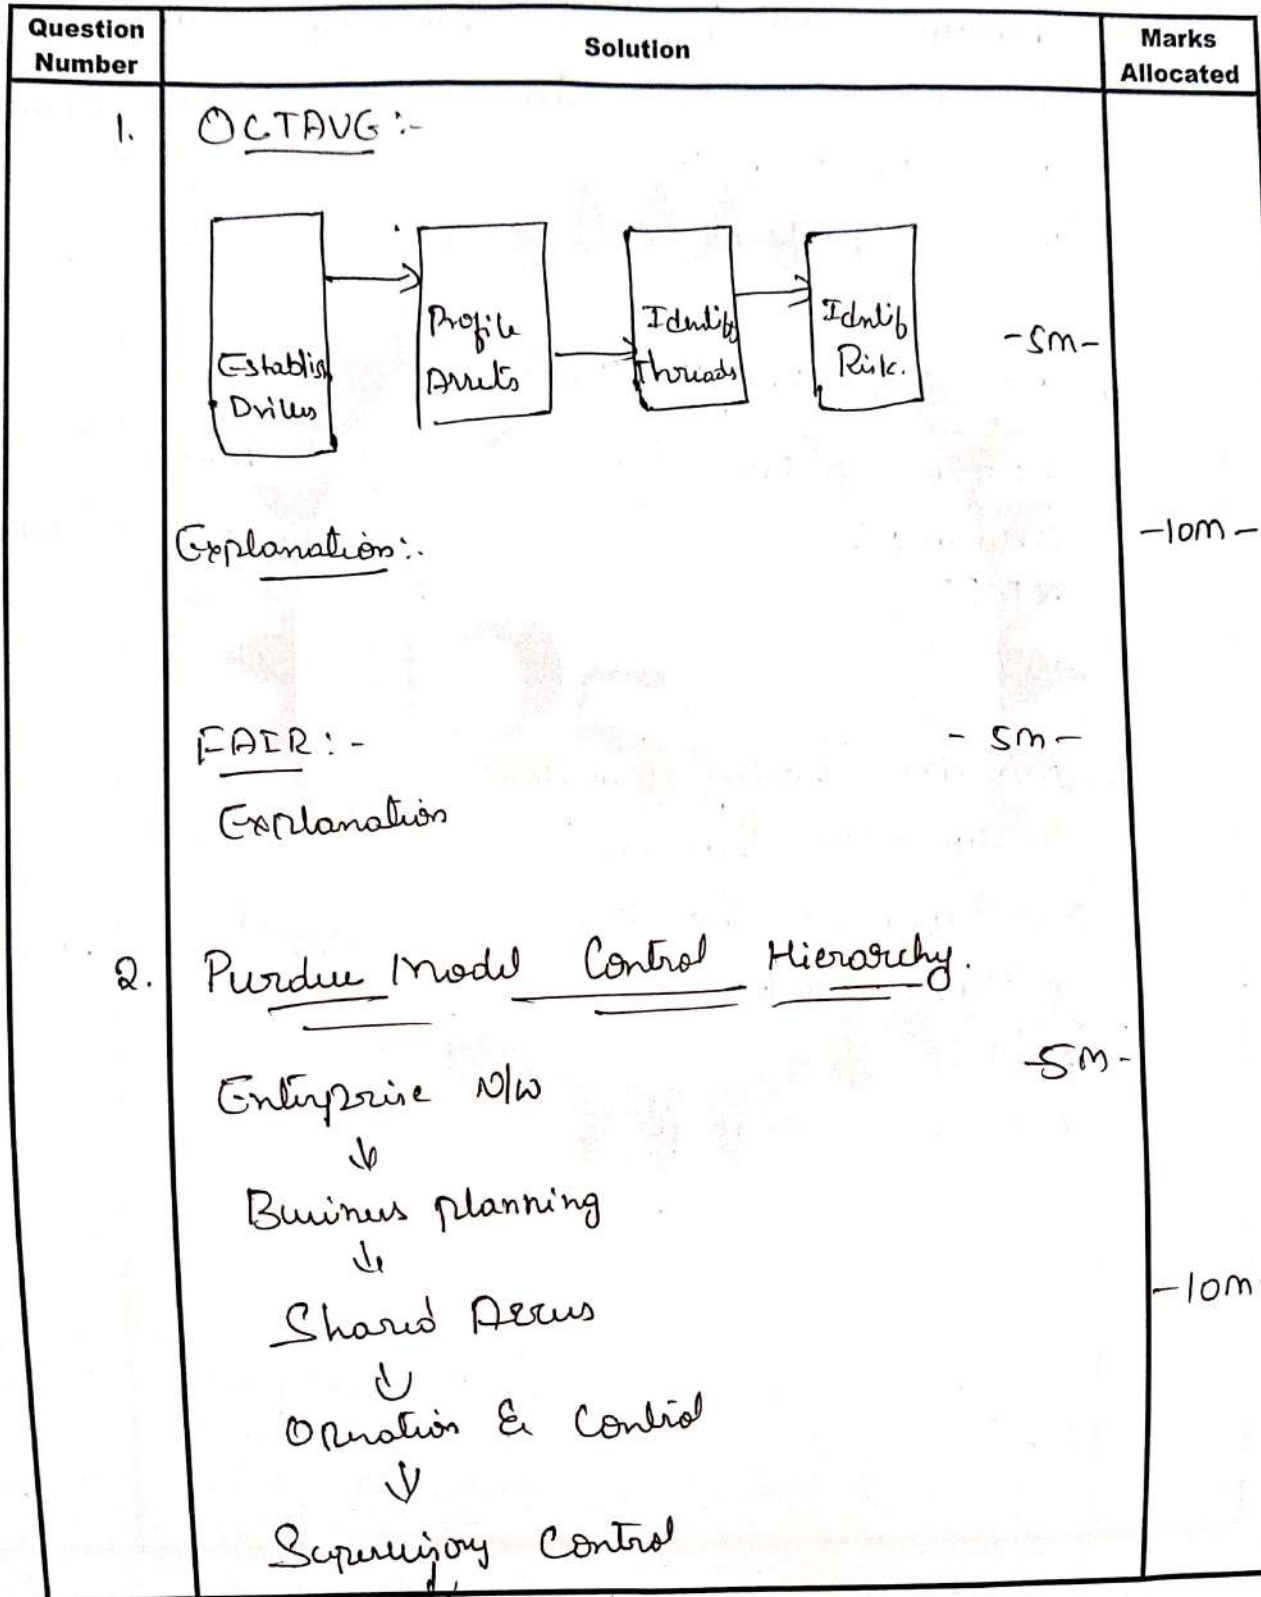 Question
Number
Solution
Marks
Allocated
1.
OCTAVE :-
Establish
Drivers
Profile
Assets
Identify
Threads
Identify
Risk.
-5m-
Explanation:-
-10m-
FAIR :-
- 5m-
Explanation
2.
Purdue Model Control Hierarchy.
-5m-
Enterprise N/W
↓
Business planning
↓
Shared Access
↓
-10m
Operation & Control
↓
Supervisory Control
↓